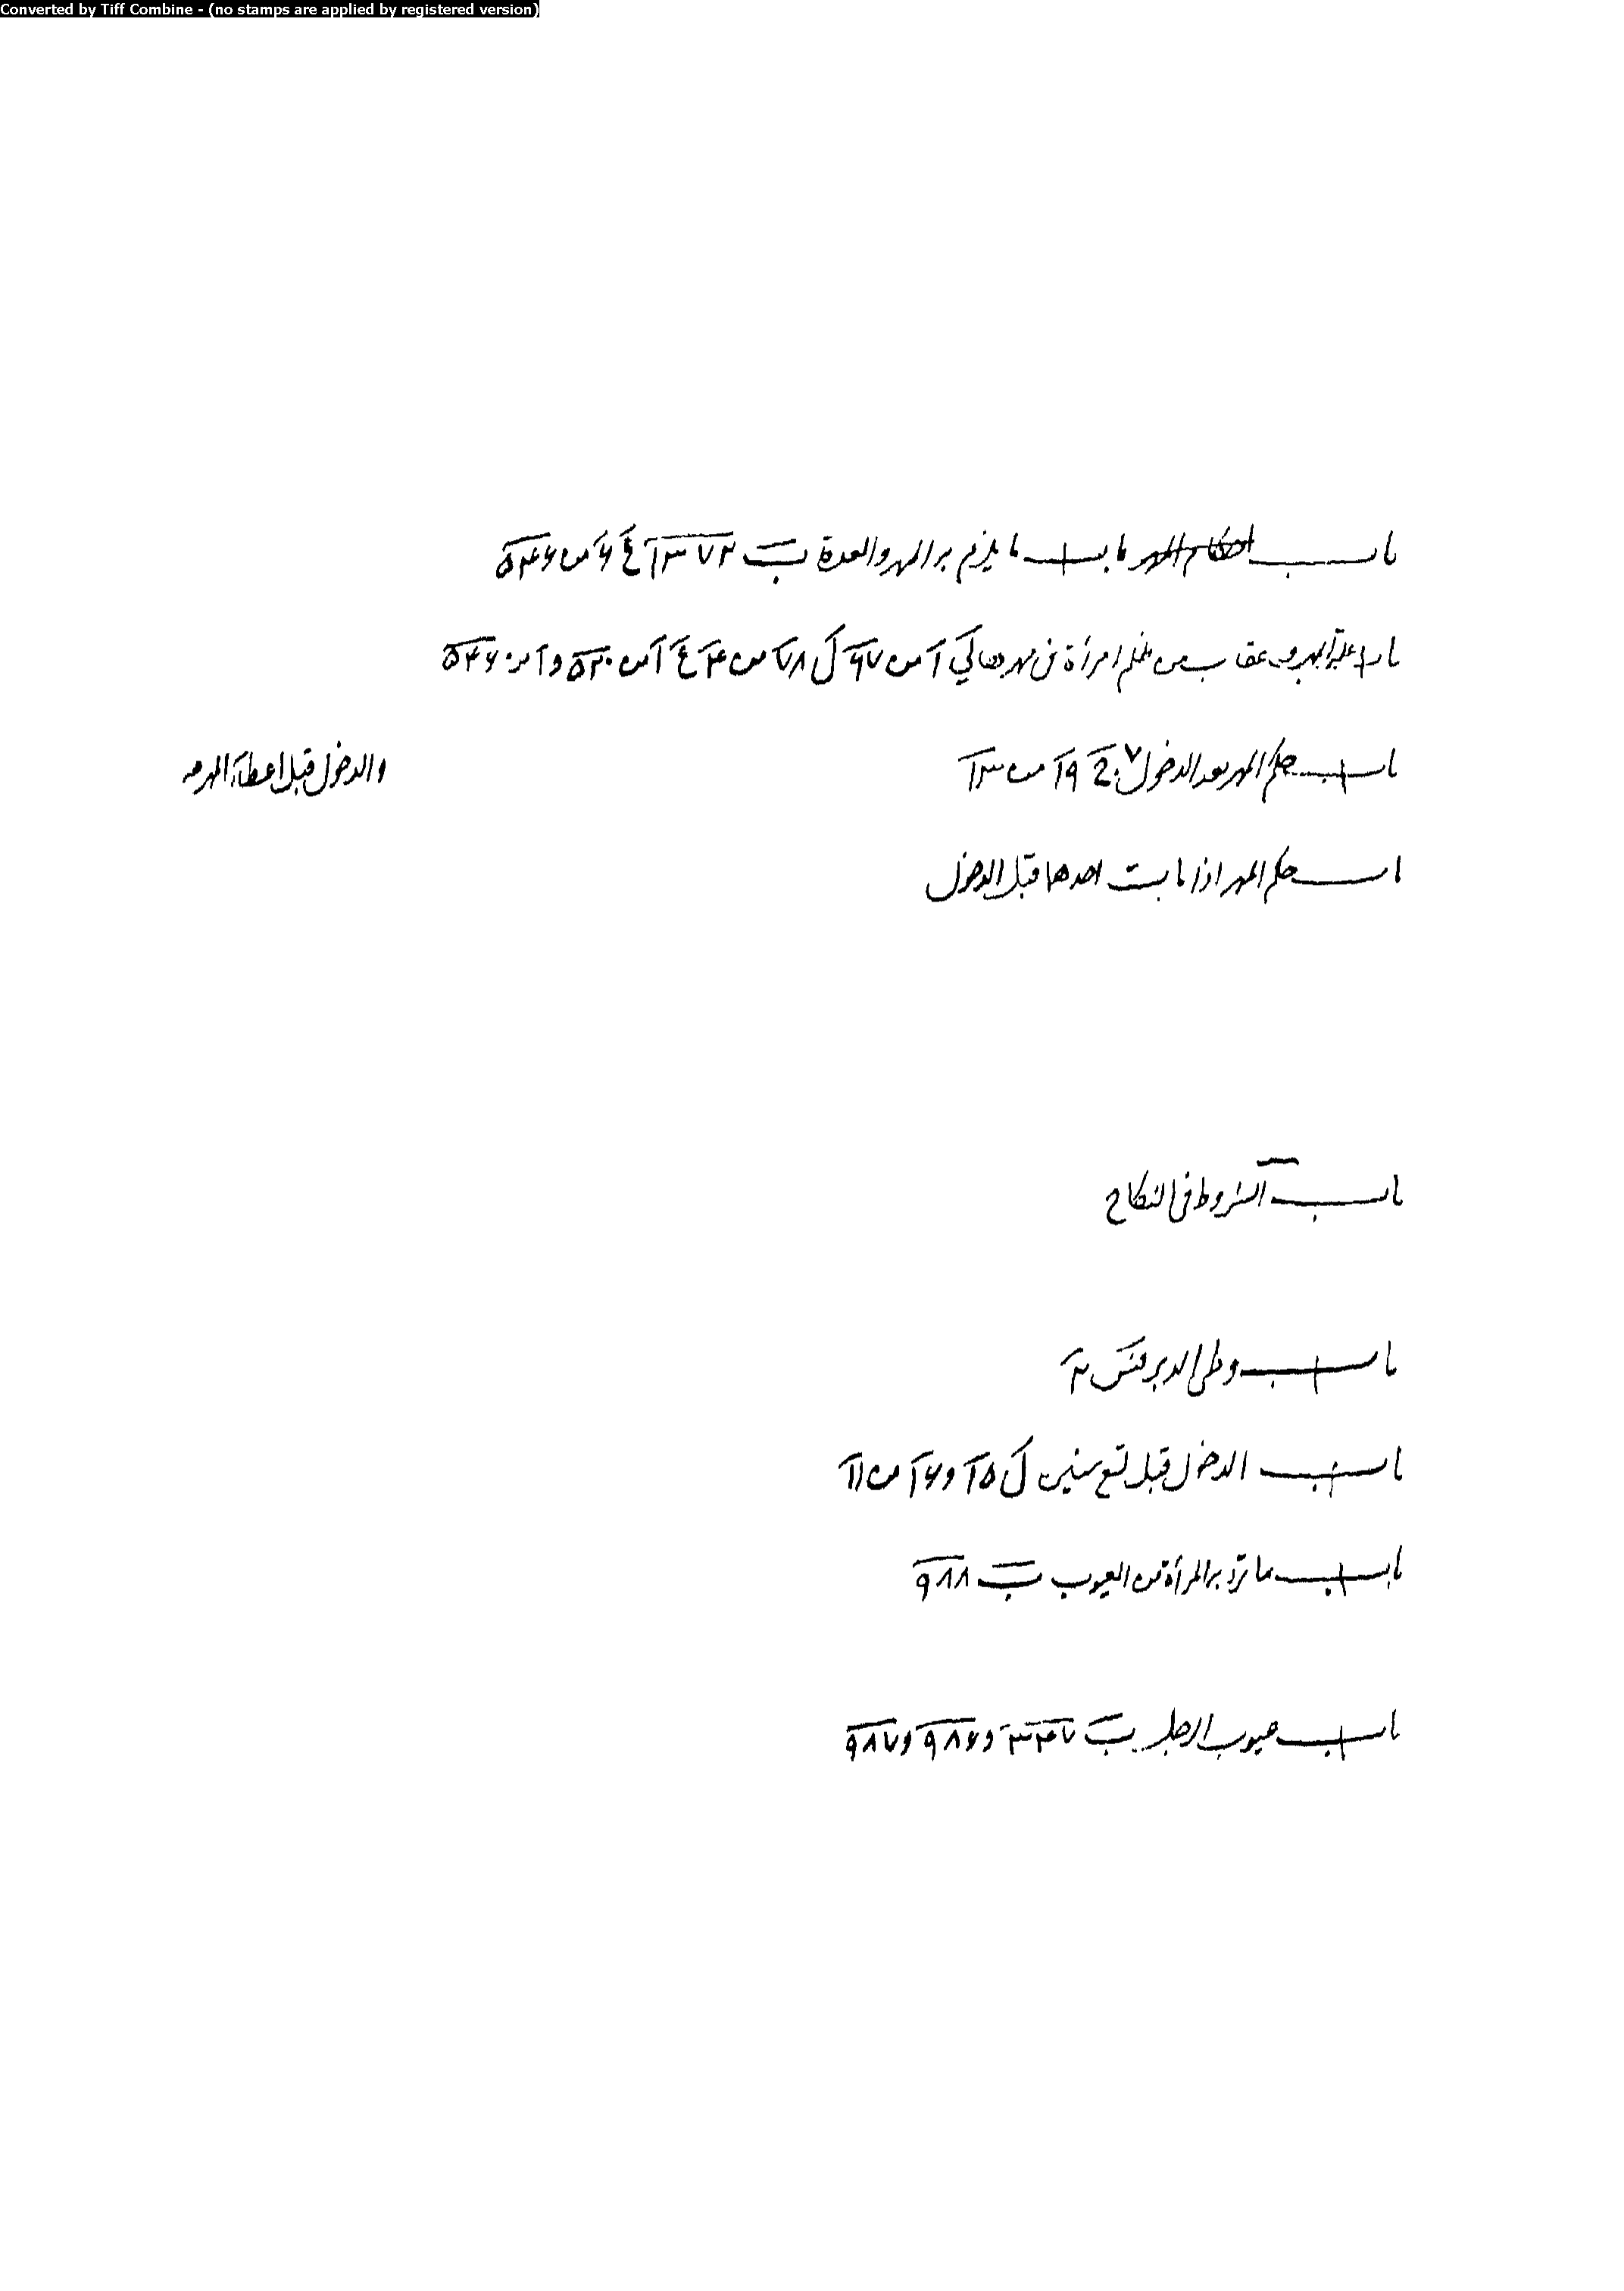 Converted by Tiff Combine - (no stamps are applied by registered version)
باب احكام المهر باب ما يلزم به المهر والعدة ب ١٣٧٢ ع ٦ س ٥٤٦
باب عقاب من ظلم امرأة في مهرها س ٦٧ ل ٧٨ س ٤ ع ١ س ٥٢٠ و ١ س ٥٤٦
باب حكم المهر بعد الدخول ١٩ س ١٣ والدخول قبل اعطاء المهر
باب حكم المهر اذا مات احدهما قبل الدخول
باب الشروط في النكاح
باب وطى الدبر ٢
باب الدخول قبل تسع سنين ل ١٥ و ١٦ س ١١
باب ما ترد به المرأة من العيوب ب ٩٨٨
باب عيوب الرجل ب ٣٤٧ و ٩٨٦ و ٩٨٧